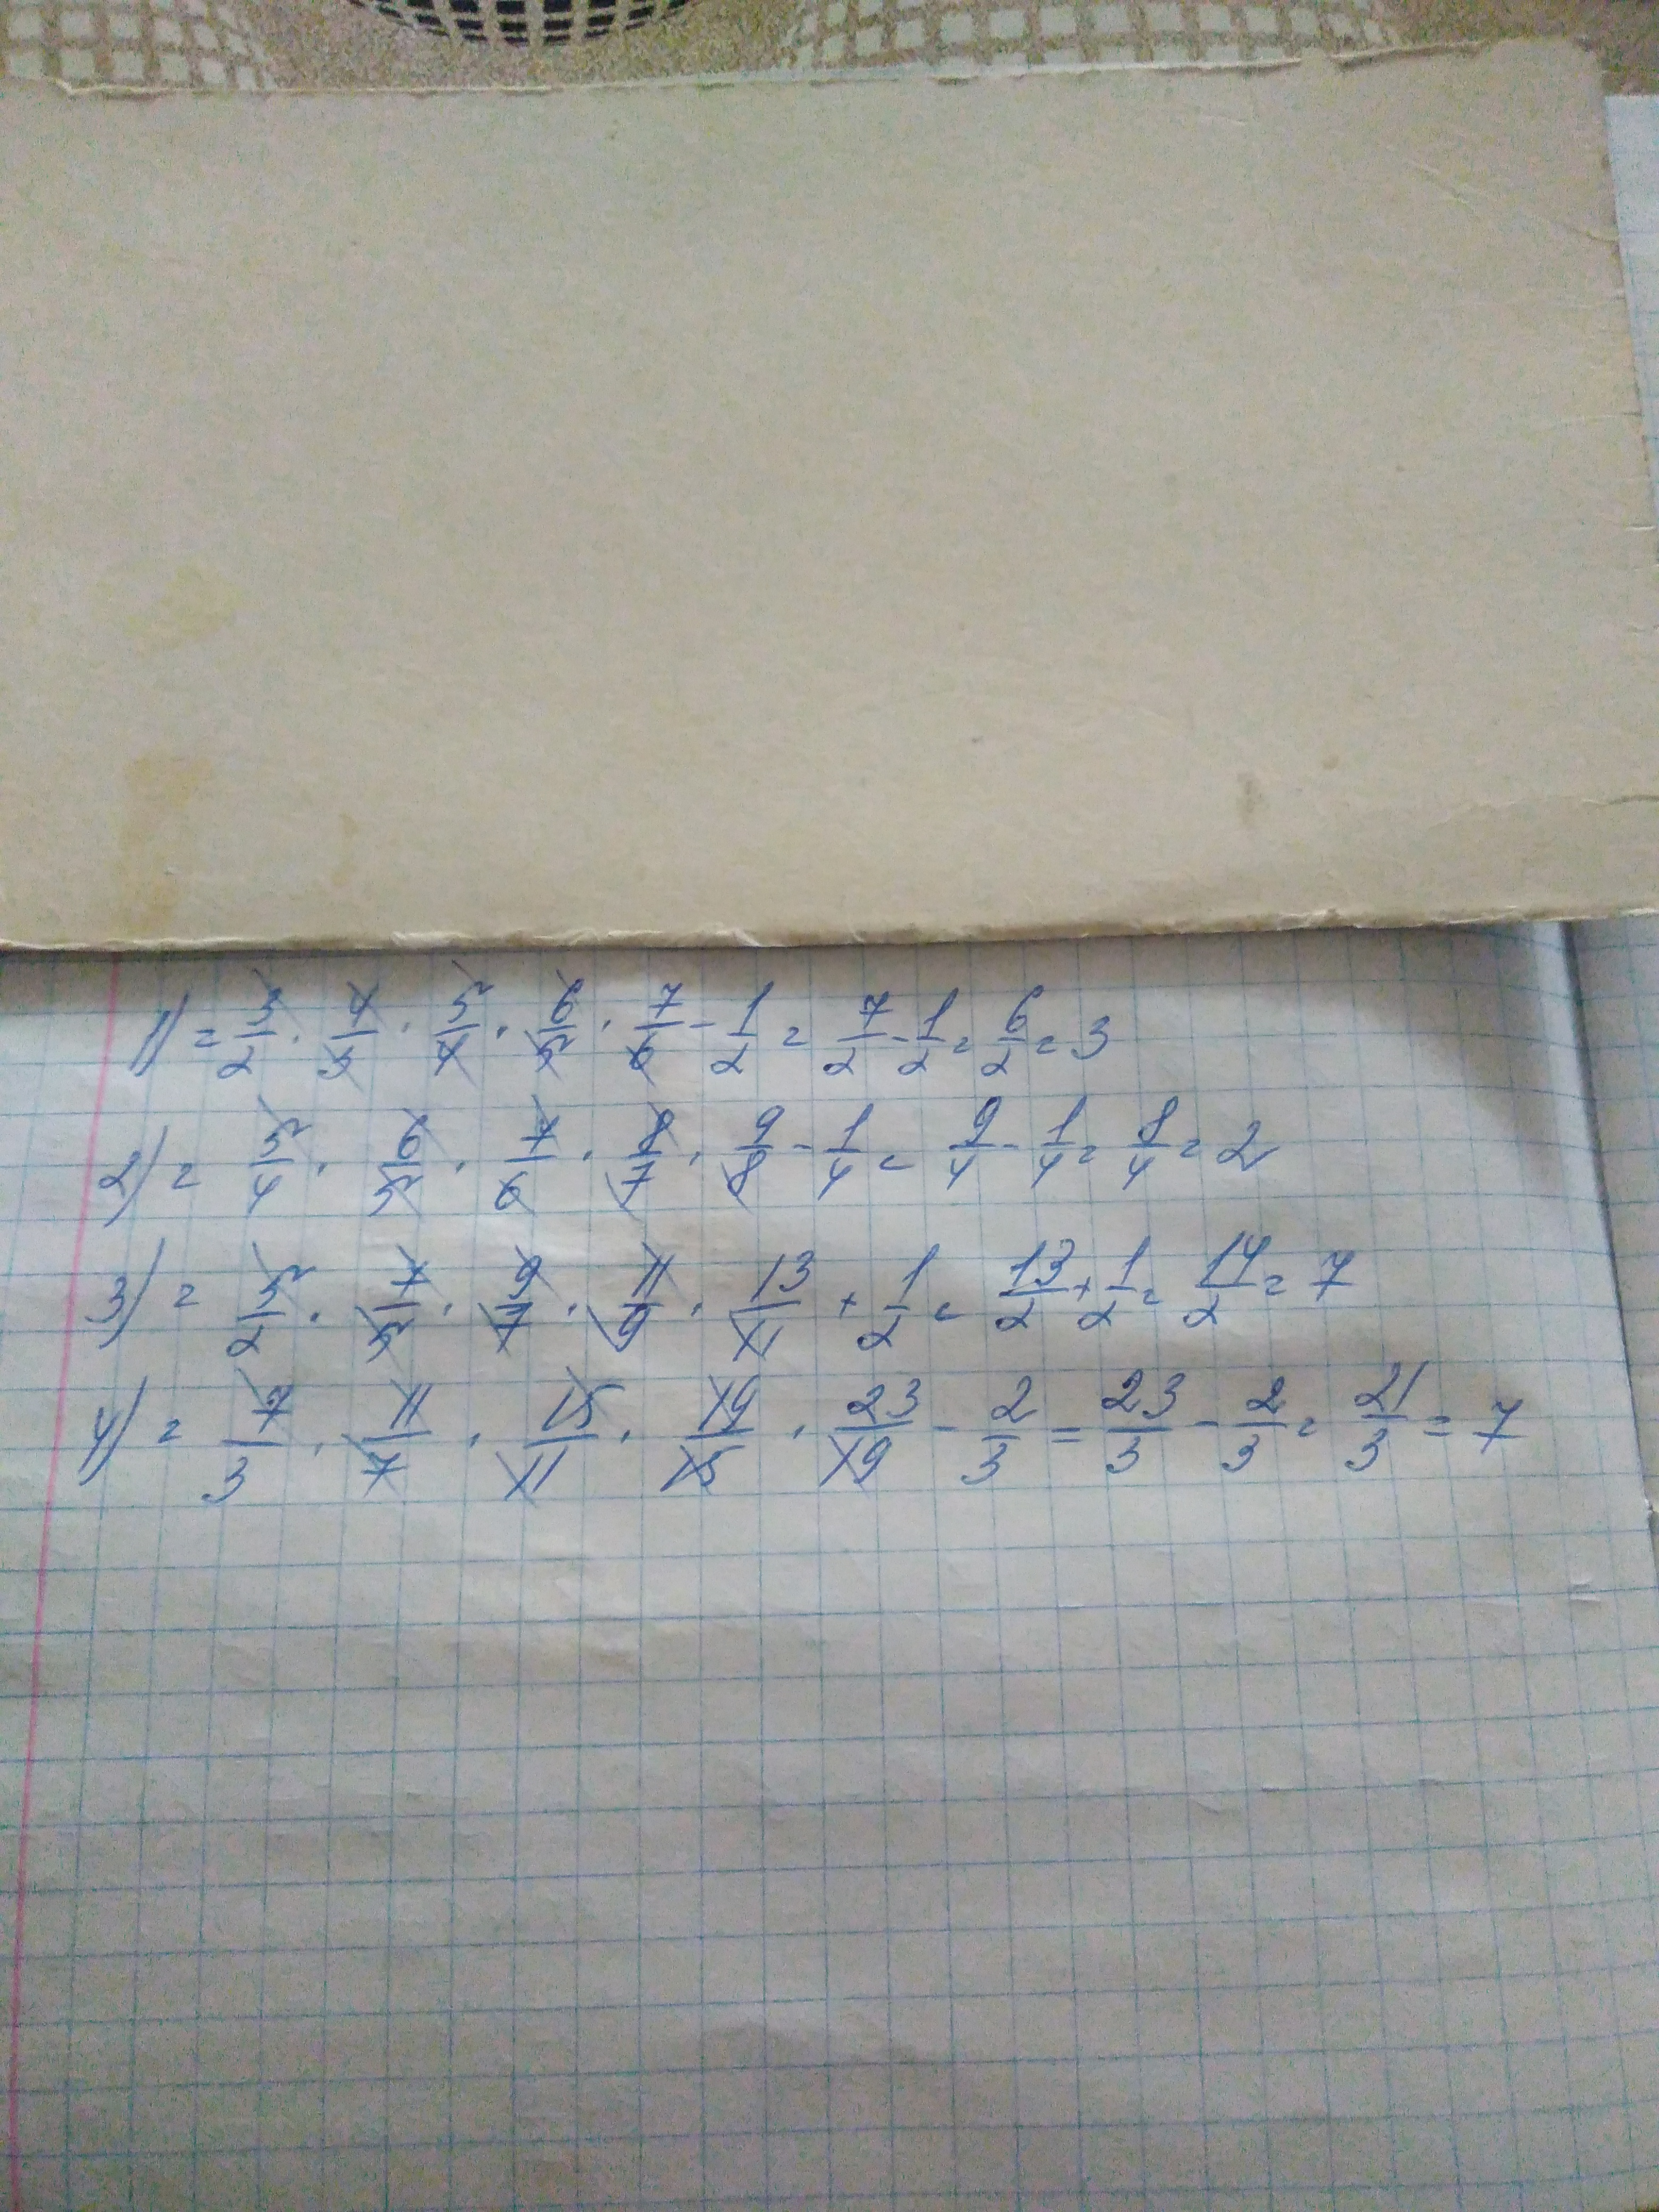 1) = 3/2 · 4/3 · 5/4 · 6/5 · 7/6 - 1/2 = 7/2 - 1/2 = 6/2 = 3
2) = 5/4 · 6/5 · 7/6 · 8/7 · 9/8 - 1/4 = 9/4 - 1/4 = 8/4 = 2
3) = 5/2 · 7/5 · 9/7 · 11/9 · 13/11 + 1/2 = 13/2 + 1/2 = 14/2 = 7
4) = 7/3 · 11/7 · 15/11 · 19/15 · 23/19 - 2/3 = 23/3 - 2/3 = 21/3 = 7